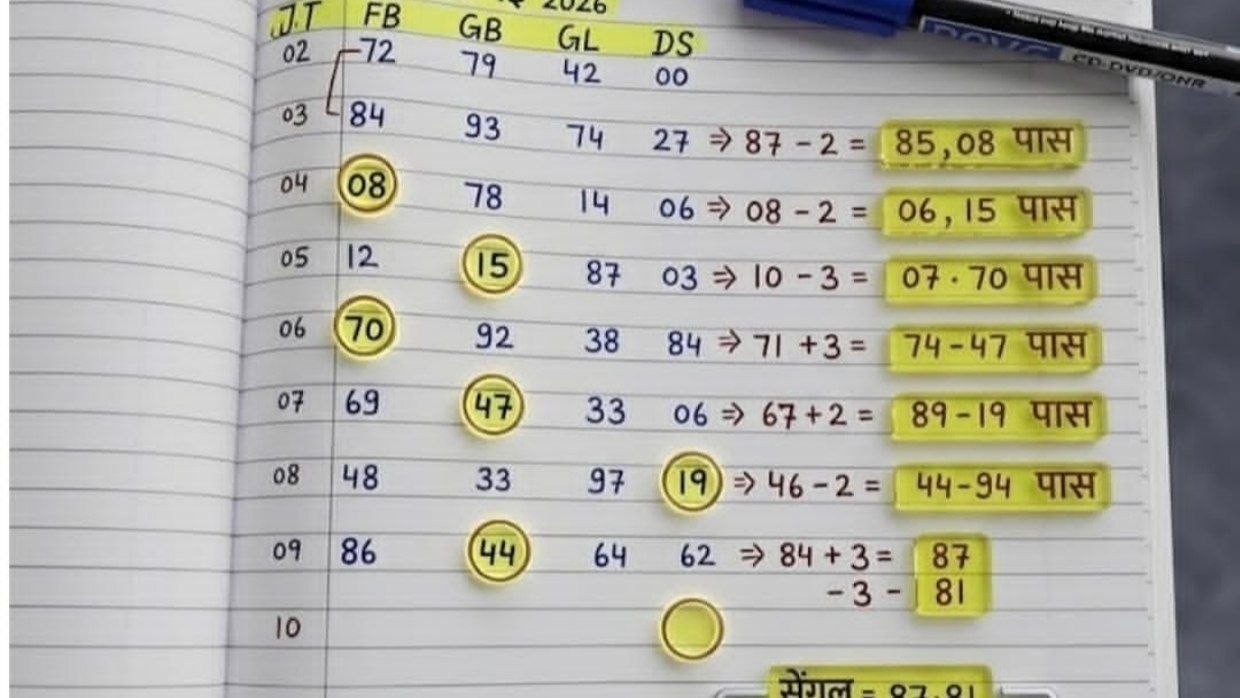 2026
J.T FB GB GL DS
02 72 79 42 00
03 84 93 74 27 ⇒ 87 - 2 = 85,08 पास
04 08 78 14 06 ⇒ 08 - 2 = 06,15 पास
05 12 15 87 03 ⇒ 10 - 3 = 07·70 पास
06 70 92 38 84 ⇒ 71 +3 = 74-47 पास
07 69 47 33 06 ⇒ 67+2 = 89-19 पास
08 48 33 97 19 ⇒ 46-2 = 44-94 पास
09 86 44 64 62 ⇒ 84+3 = 87
-3 - 81
10
सेंगल = 87.81
CD-DVD/OHP